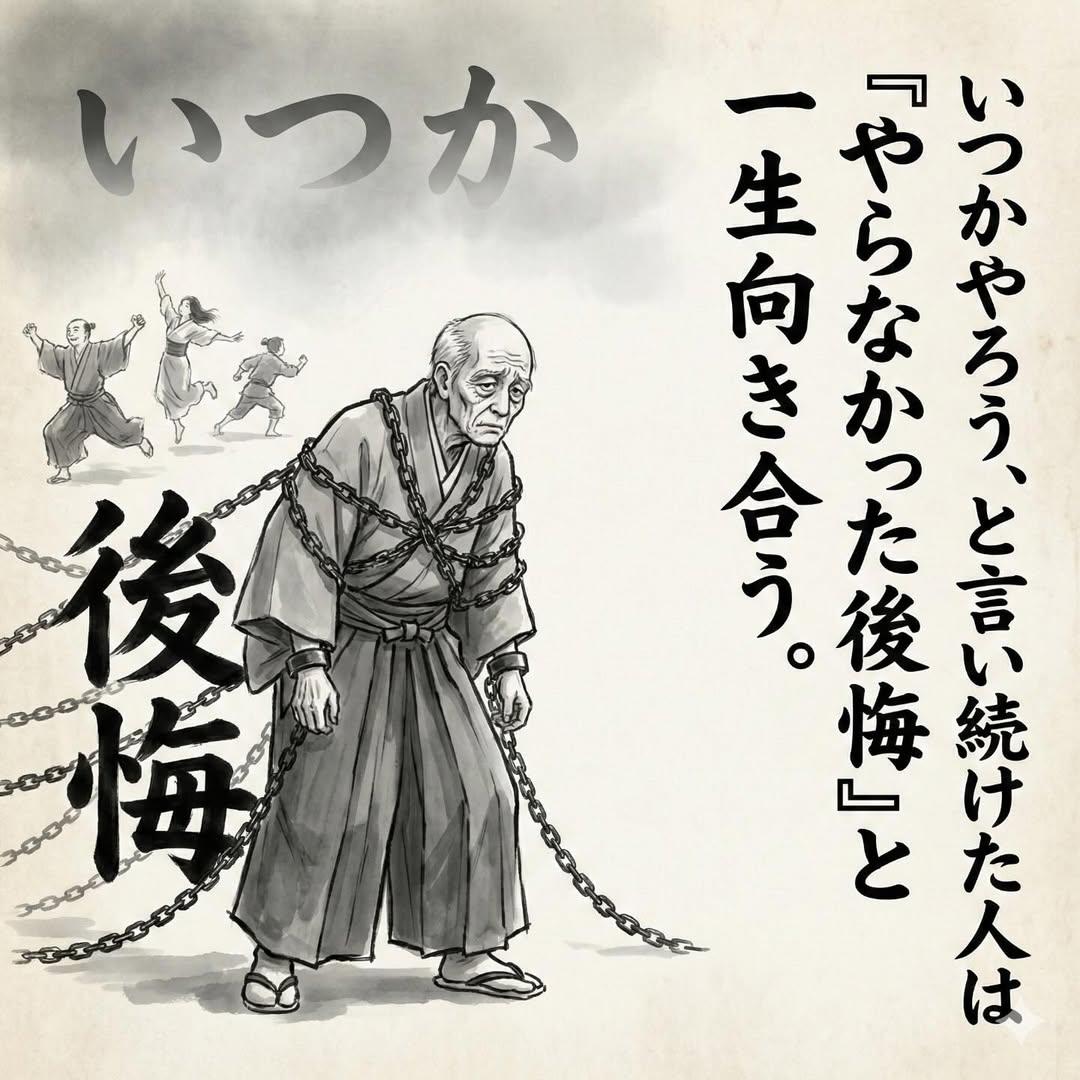 いつかやろう、と言い続けた人は
『やらなかった後悔』と
一生向き合う。
いつか
後悔